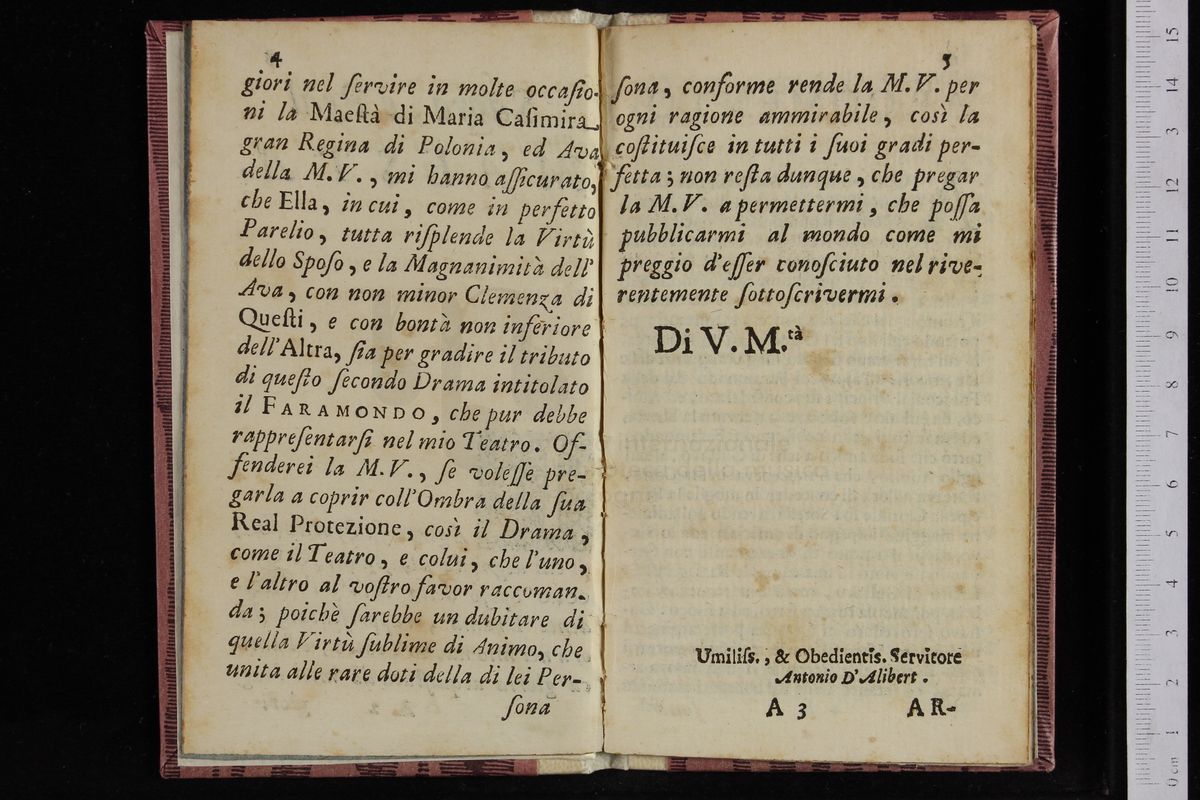 4
giori nel ſervire in molte occaſio-
ni la Maeſtà di Maria Caſimira
gran Regina di Polonia, ed Ava
della M. V., mi hanno aſſicurato,
che Ella, in cui, come in perfetto
Parelio, tutta riſplende la Virtù
dello Spoſo, e la Magnanimità dell'
Ava, con non minor Clemenza di
Queſti, e con bontà non inferiore
dell'Altra, ſia per gradire il tributo
di queſto ſecondo Drama intitolato
il FARAMONDO, che pur debbe
rappreſentarſi nel mio Teatro. Of-
fenderei la M. V., ſe voleſſe pre-
garla a coprir coll'Ombra della ſua
Real Protezione, così il Drama,
come il Teatro, e colui, che l'uno,
e l'altro al voſtro favor raccoman-
da; poichè ſarebbe un dubitare di
quella Virtù ſublime di Animo, che
unita alle rare doti della di lei Per-
ſona
5
ſona, conforme rende la M. V. per
ogni ragione ammirabile, così la
coſtituiſce in tutti i ſuoi gradi per-
fetta; non reſta dunque, che pregar
la M. V. a permettermi, che poſſa
pubblicarmi al mondo come mi
preggio d'eſſer conoſciuto nel rive-
rentemente ſottoſcrivermi.
Di V. M.tà
Umiliſs., & Obedientiſs. Servitore
Antonio D'Alibert.
A 3 AR-
0 cm 1 2 3 4 5 6 7 8 9 10 11 12 13 14 15